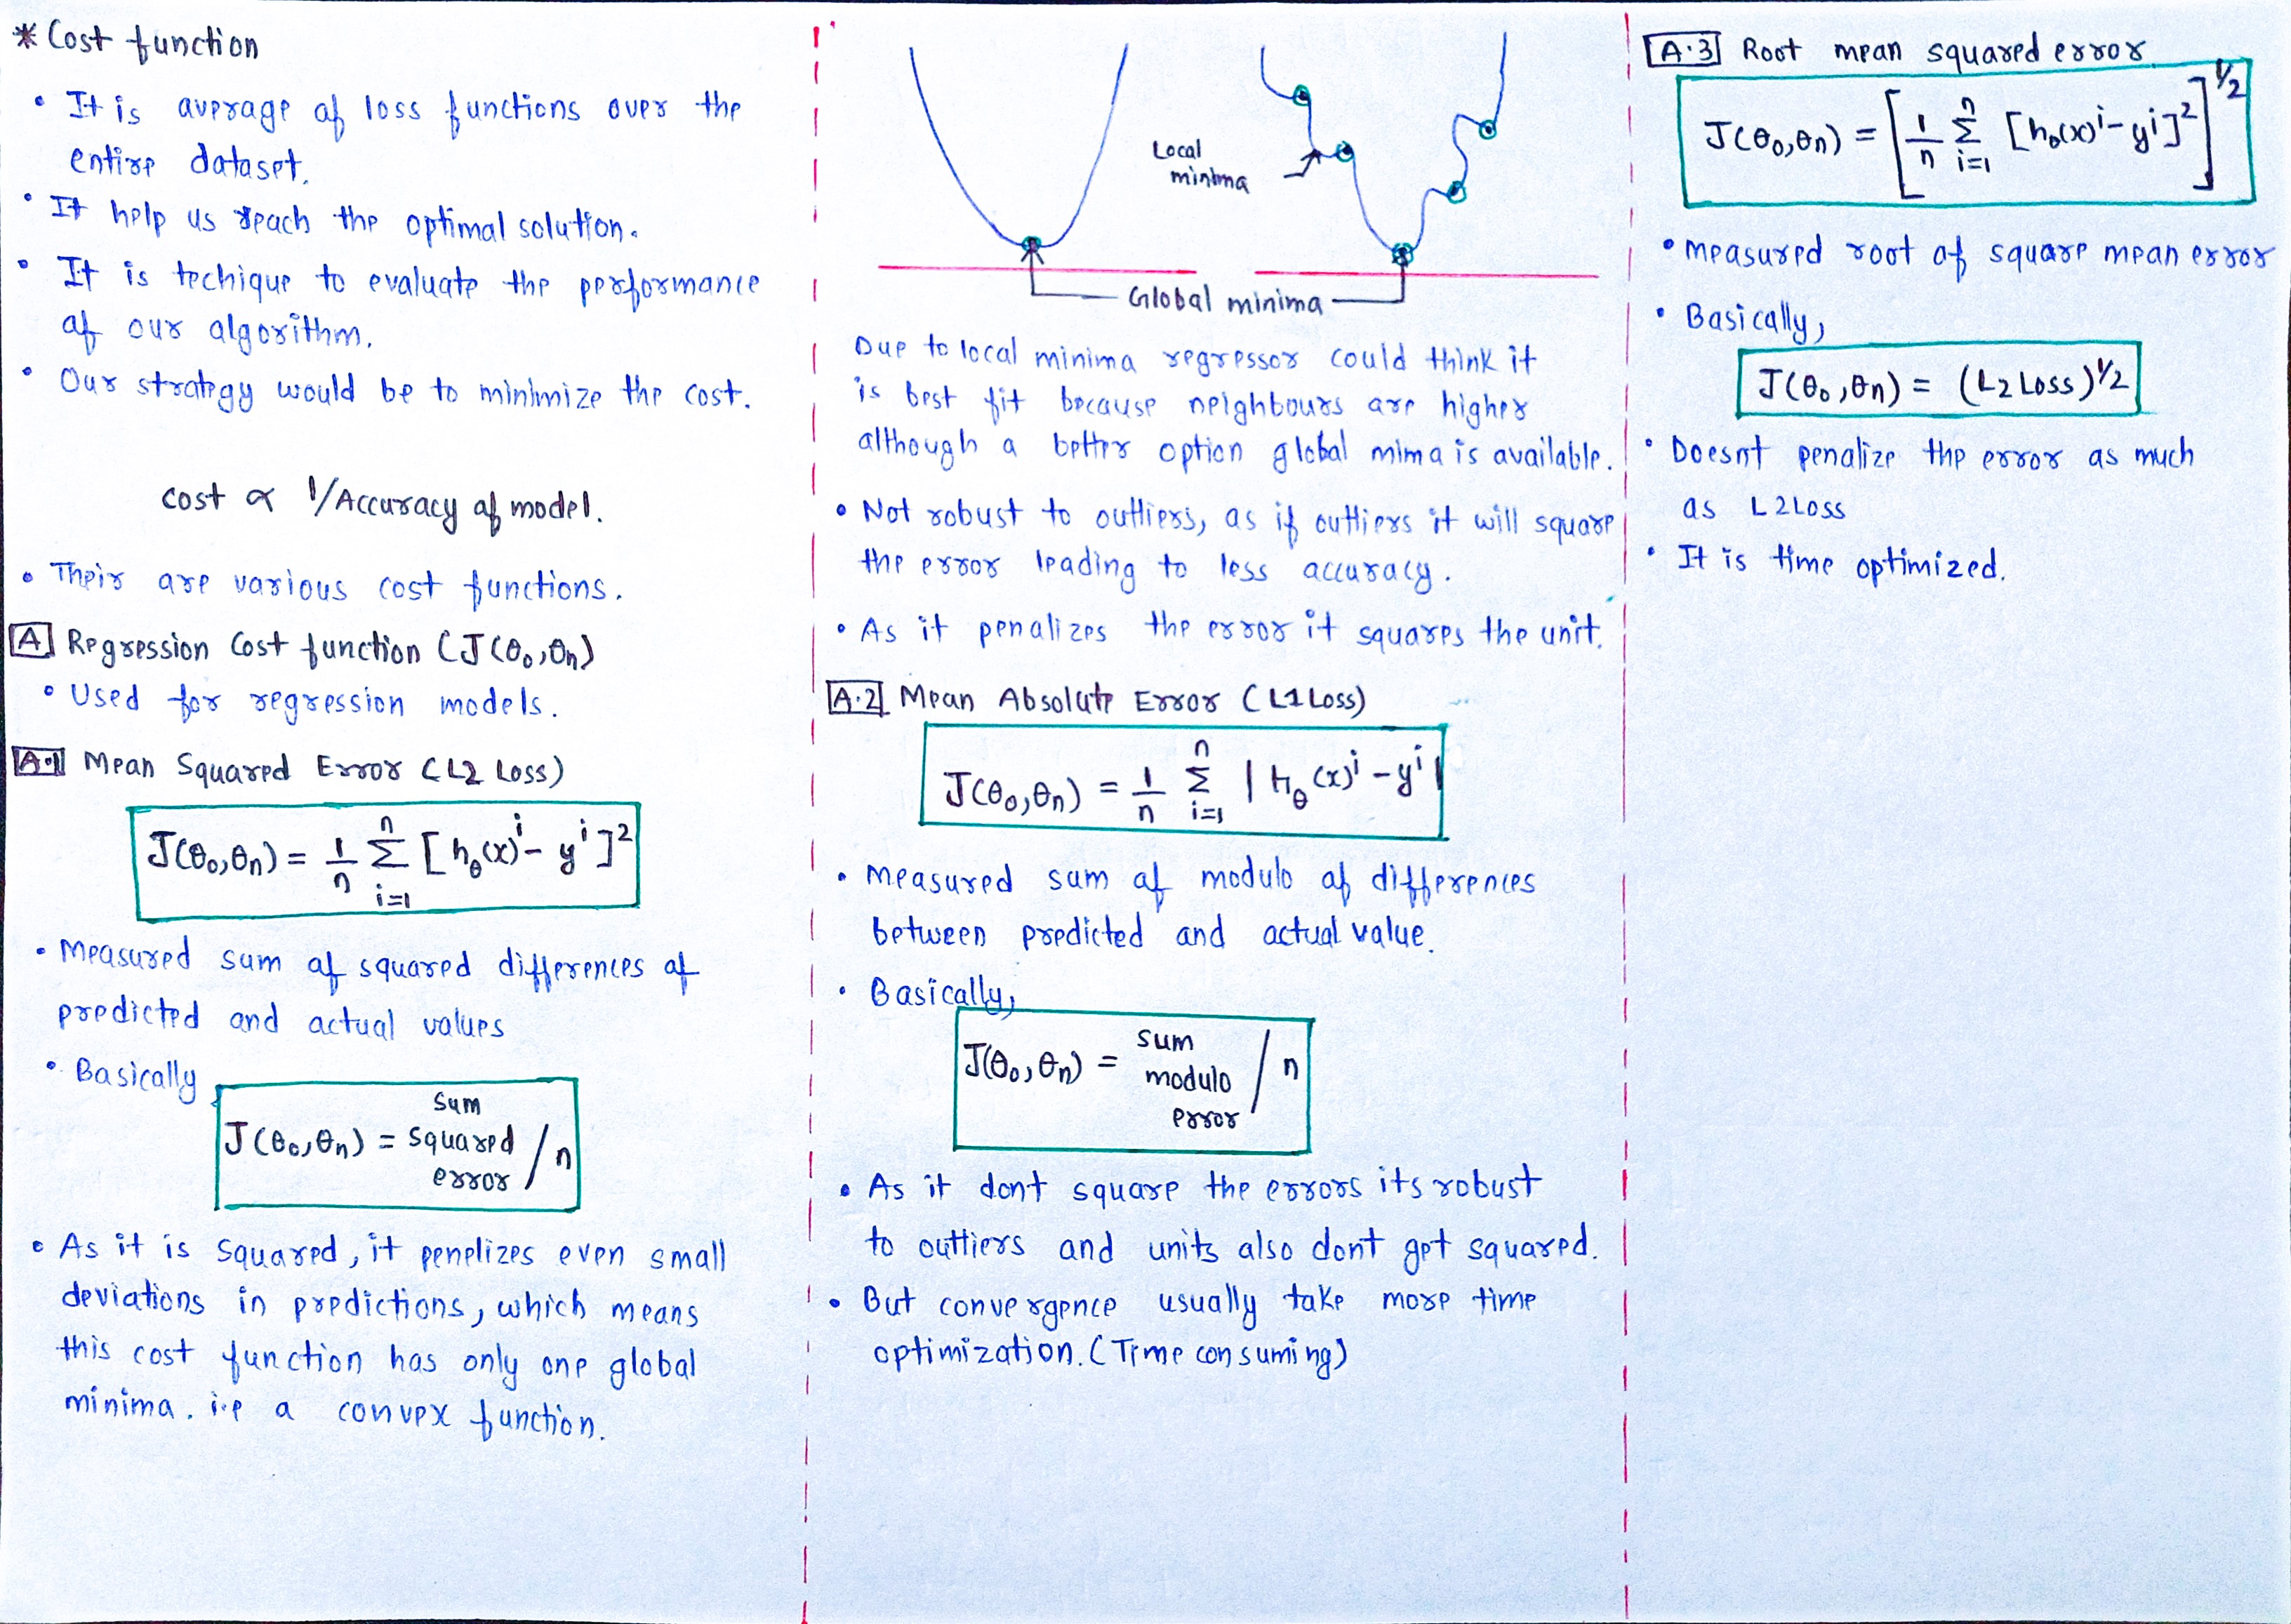 * Cost function
• It is average of loss functions over the
entire dataset.
• It help us reach the optimal solution.
• It is techique to evaluate the performance
of our algorithm.
• Our strategy would be to minimize the cost.
cost ∝ 1/Accuracy of model.
• Their are various cost functions.
[A] Regression Cost function (J(θ₀,θn)
• Used for regression models.
[A.1] Mean Squared Error (L2 Loss)
J(θ₀,θn) = 1/n Σ_{i=1}^{n} [h_θ(x)^i - y^i]^2
• Measured sum of squared differences of
predicted and actual values
• Basically
J(θ₀,θn) = sum squared error / n
• As it is squared, it penelizes even small
deviations in predictions, which means
this cost function has only one global
minima. i.e a convex function.
Local
minima
Global minima
Due to local minima regressor could think it
is best fit because neighbours are higher
although a better option global mima is available.
• Not robust to outliers, as if outliers it will square
the error leading to less accuracy.
• As it penalizes the error it squares the unit.
[A.2] Mean Absolute Error (L1 Loss)
J(θ₀,θn) = 1/n Σ_{i=1}^{n} | h_θ(x)^i - y^i |
• Measured sum of modulo of differences
between predicted and actual value.
• Basically,
J(θ₀,θn) = sum modulo error / n
• As it dont square the errors its robust
to outliers and units also dont get squared.
• But convergence usually take more time
optimization. (Time consuming)
[A.3] Root mean squared error
J(θ₀,θn) = [1/n Σ_{i=1}^{n} [h_θ(x)^i - y^i]^2]^{1/2}
• measured root of square mean error
• Basically,
J(θ₀,θn) = (L2 Loss)^{1/2}
• Doesnt penalize the error as much
as L2 Loss
• It is time optimized.